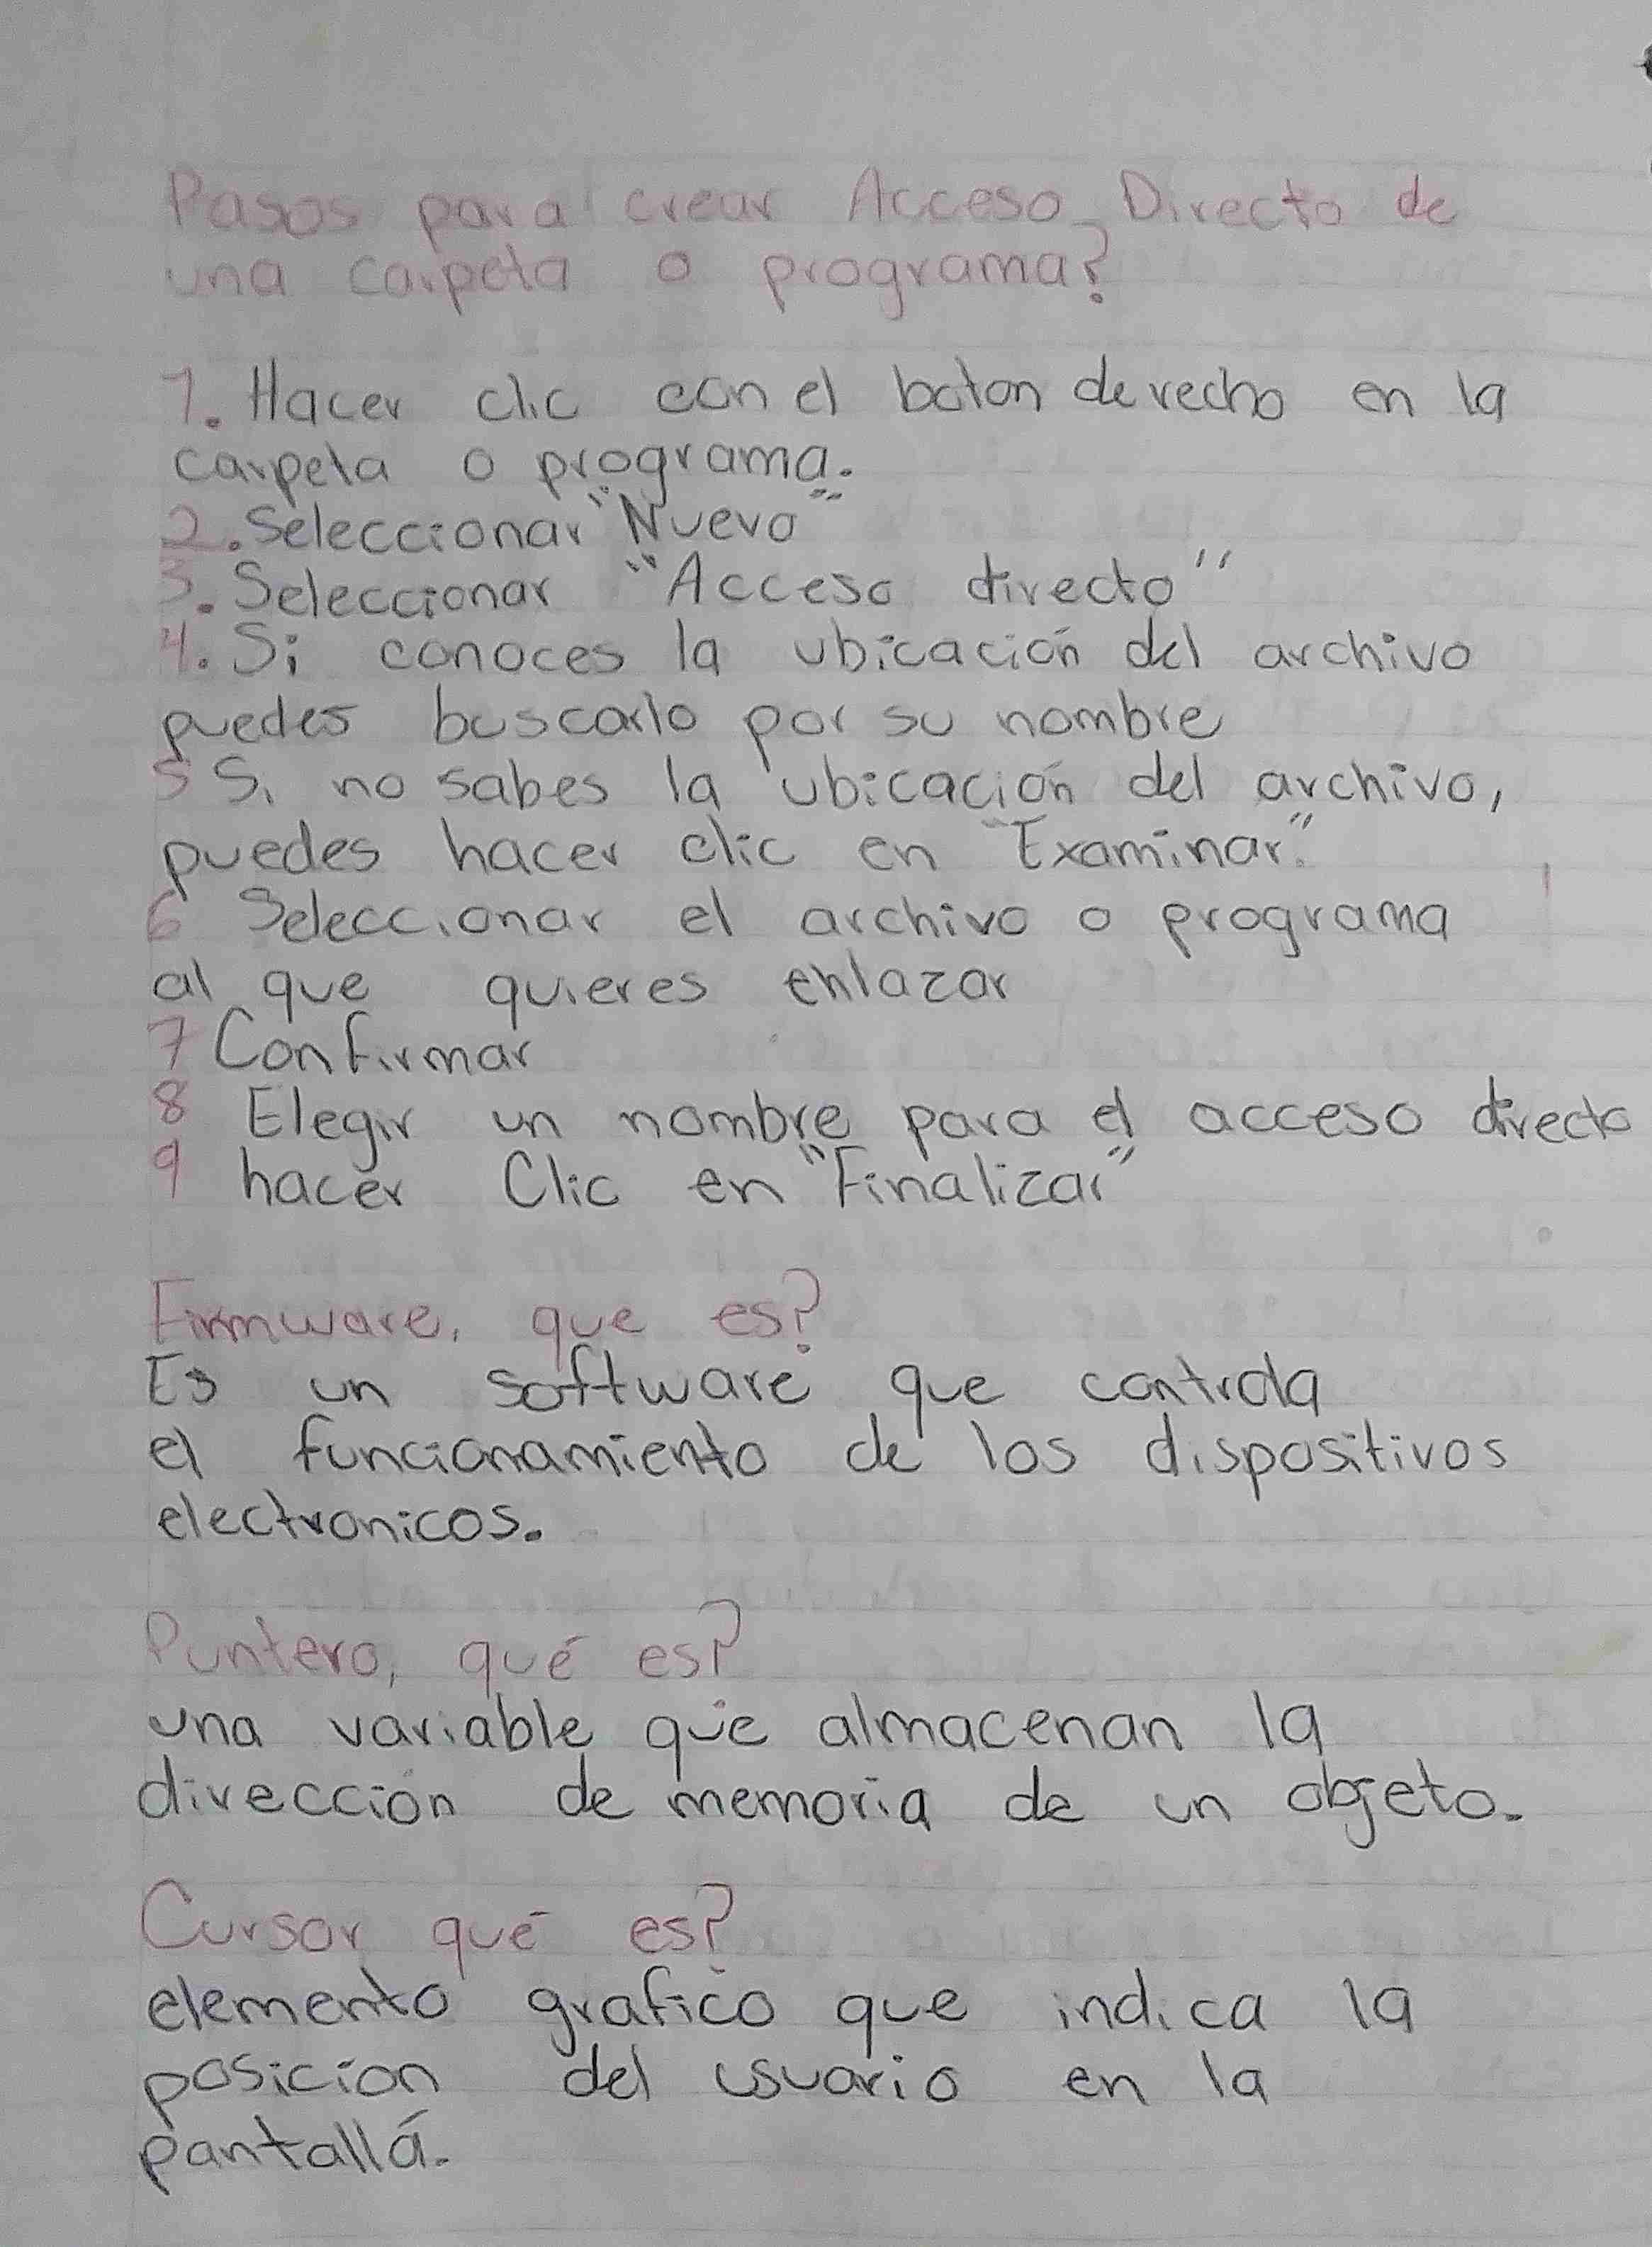 Pasos para crear Acceso Directo de
una carpeta o programa?
1. Hacer clic con el boton derecho en la
carpeta o programa.
2. Seleccionar "Nuevo"
3. Seleccionar "Acceso directo"
4. Si conoces la ubicación del archivo
puedes buscarlo por su nombre
5 Si no sabes la ubicación del archivo,
puedes hacer clic en "Examinar".
6 Seleccionar el archivo o programa
al que quieres enlazar
7 Confirmar
8 Elegir un nombre para el acceso directo
9 hacer Clic en "Finalizar"
Firmware, que es?
Es un software que controla
el funcionamiento de los dispositivos
electronicos.
Puntero, qué es?
una variable que almacenan la
dirección de memoria de un objeto.
Cursor qué es?
elemento grafico que indica la
posicion del usuario en la
pantallá.